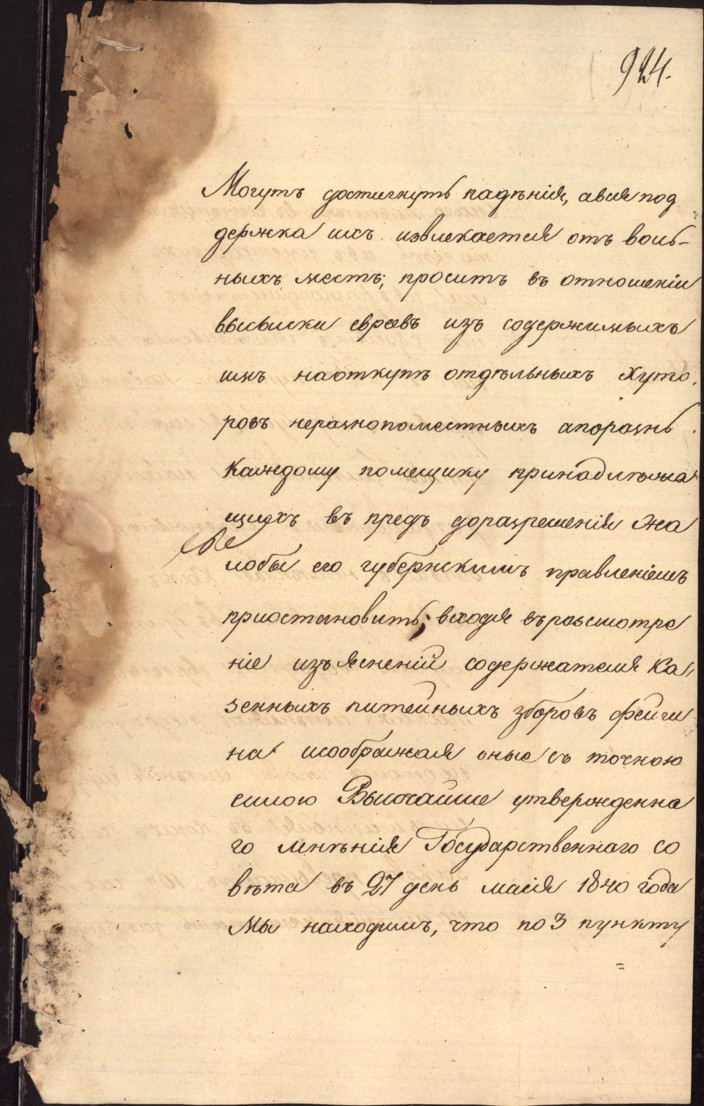 924.
Могутъ достигнуть паденія, ався под
держка ихъ извлекается отъ воль-
ныхъ местъ; проситъ въ отношеніи
высылки евреевъ изъ содержимыхъ
имъ наоткупъ отдѣльныхъ хуто.
ровъ неразнопоместныхъ апорознь
каждому помещику принадлежа
щихъ въ предь доразрешенія жа
лобы его губернскимъ правленіемъ
приостановить; входя въразсмотре
ніе изъясненій содержателя Ка,,
зенныхъ питейныхъ зборовъ Фейги
на исоображая оные съ точною
силою Высочайше утвержденна
го мнѣнія Государственнаго со
вѣта въ 27 день маія 1840 года
Мы находимъ, что по 3 пункту